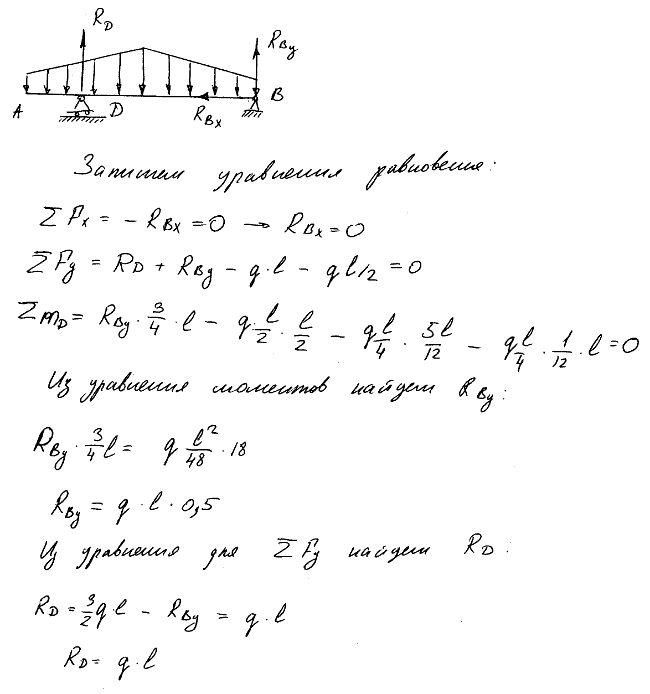 R_D
R_By
A
D
R_Bx
B
Запишем уравнения равновесия:
ΣFx = - R_Bx = 0 → R_Bx = 0
ΣFy = R_D + R_By - q·l - ql/2 = 0
Σm_D = R_By · 3/4 · l - q·l/2 · l/2 - ql/4 · 5l/12 - ql/4 · 1/12 · l = 0
Из уравнения моментов найдем R_By:
R_By · 3/4 l = q l²/48 · 18
R_By = q · l · 0,5
Из уравнения для ΣFy найдем R_D:
R_D = 3/2 q·l - R_By = q·l
R_D = q·l